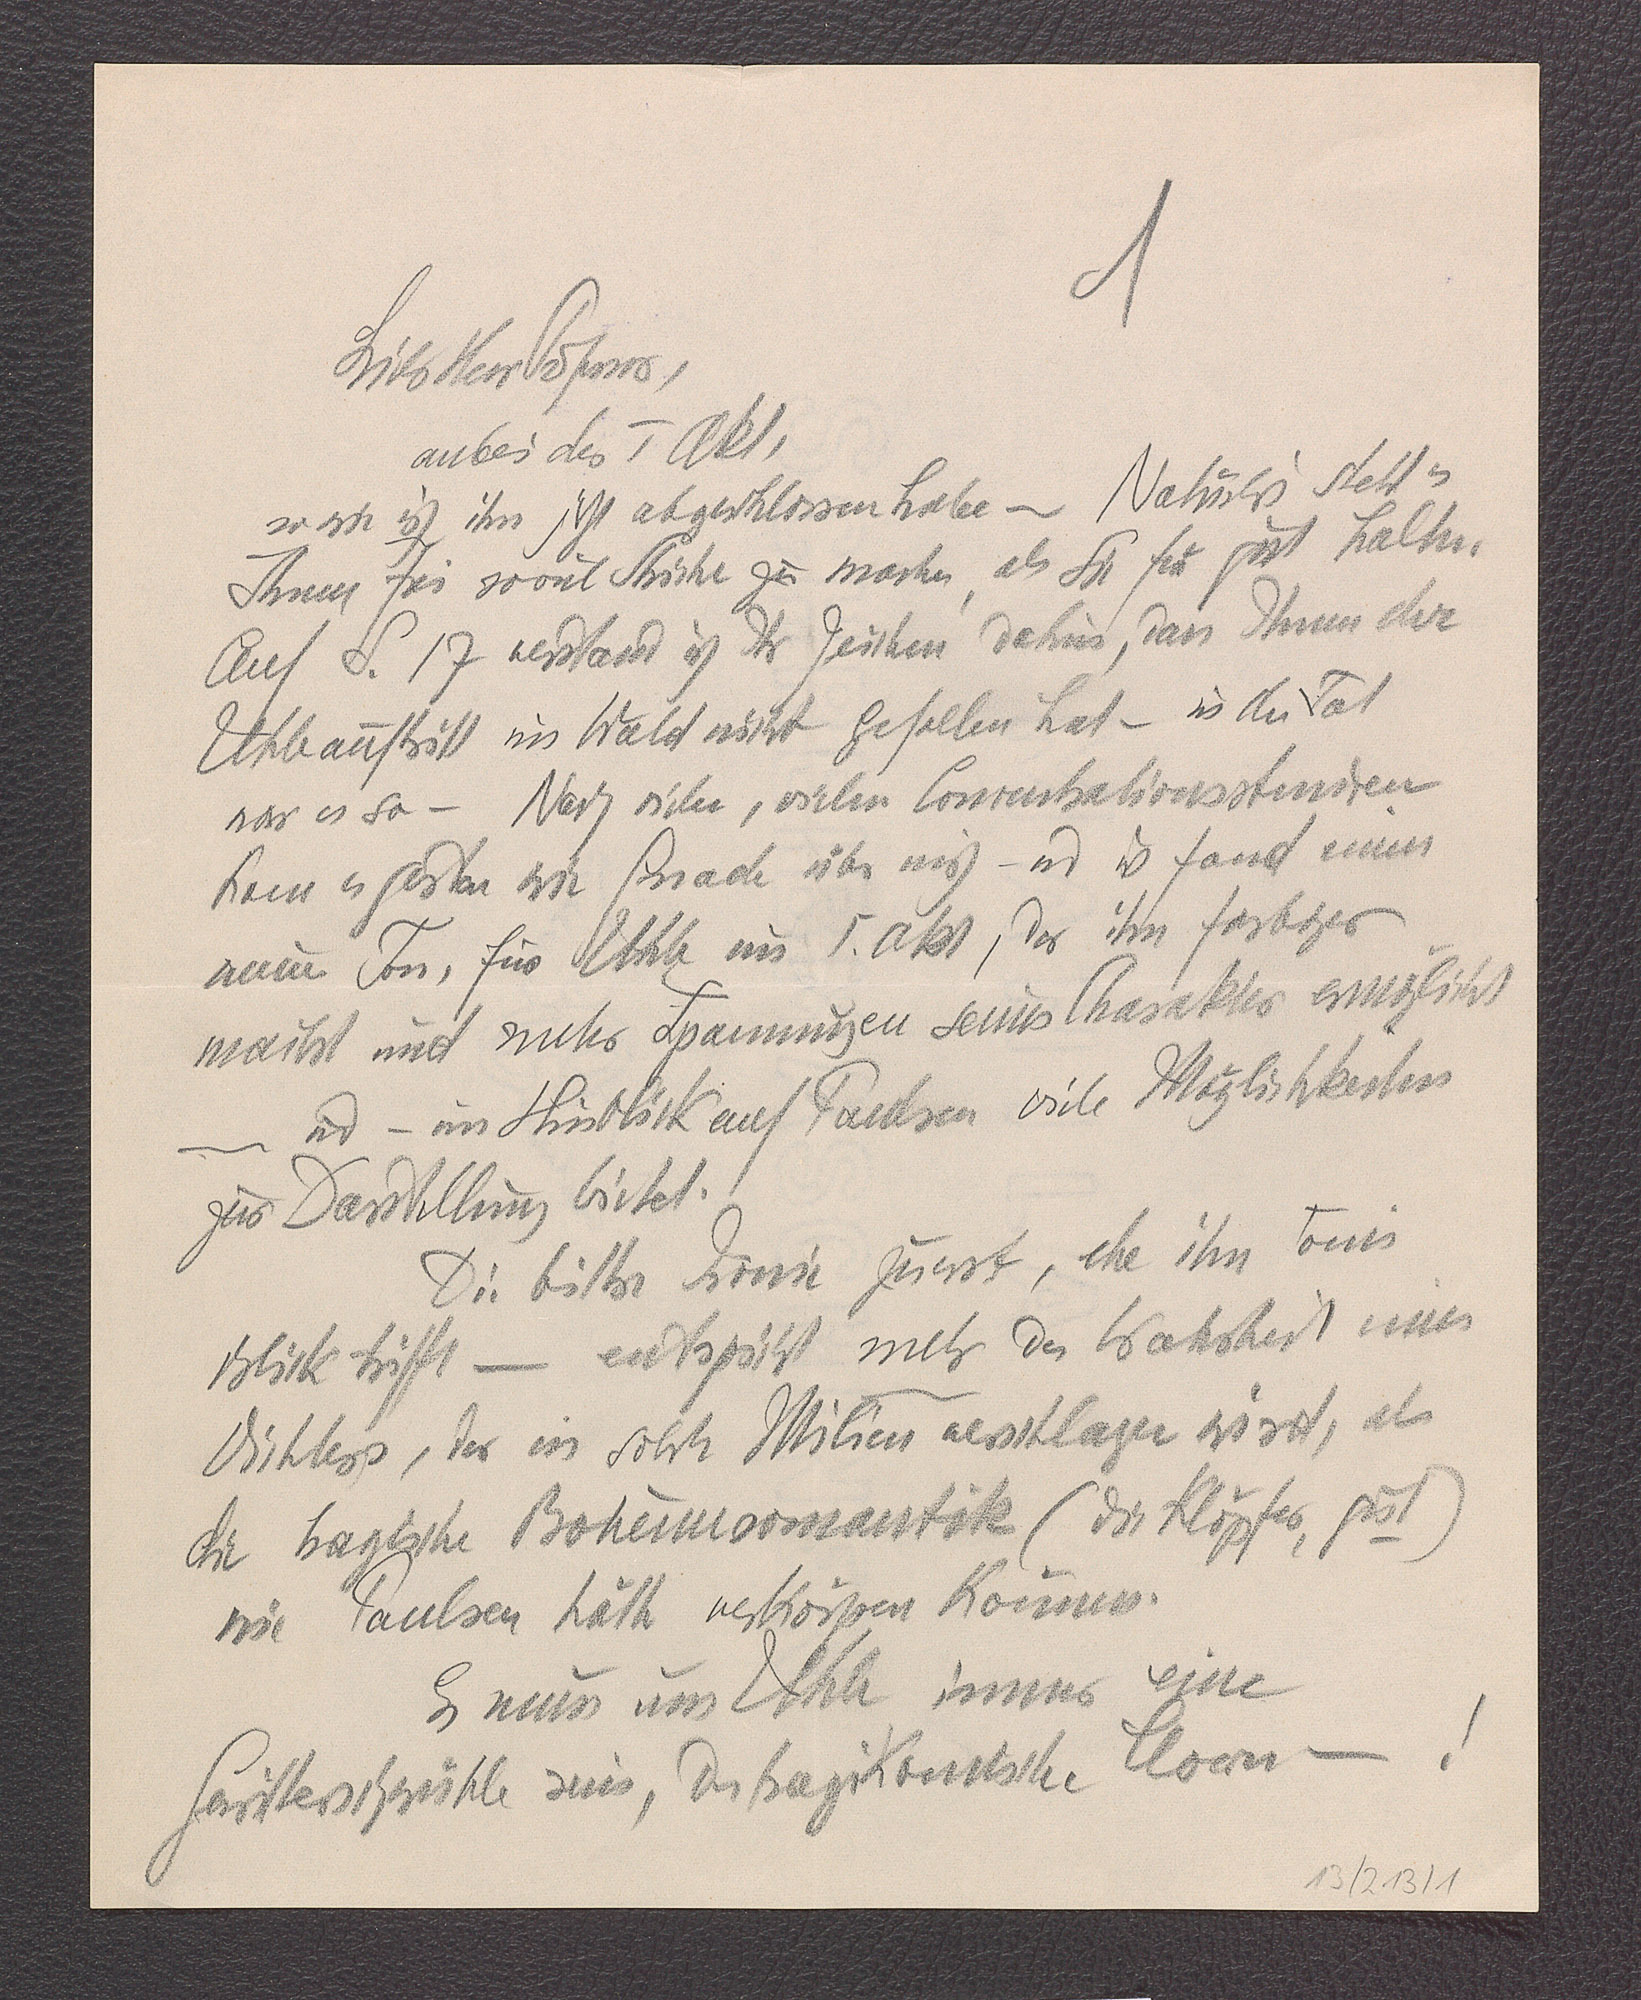 1
Lieber Herr Professor,
anbei der I Akt,
so wie ich ihn jetzt abgeschlossen habe – Natürlich steht es
Ihnen frei soviel Striche zu machen, als Sie für gut halten.
Auf S. 17 verstand ich Ihr Zeichen dahin, dass Ihnen der
Uhleauftritt im Wald nicht gefallen hat – in der Tat
war es so – Nach vielen, vielen Concentrationsstunden
kam es gestern wie Gnade über mich – und ich fand einen
neuen Ton, für Uhle im I. Akt, der ihn farbiger
macht und mehr Spannungen seines Charakters ermöglicht
— und – im Hinblick auf Paulsen viele Möglichkeiten
zur Darstellung bietet.
Die bittre Ironie zuerst, ehe ihn Tonis
Blick trifft — entspricht mehr der Wahrheit eines
Dichters, der in solch Milieu verschlagen wird, als
die tragische Bohèmeromantik (die Klöpfer, gut)
wie Paulsen hätte verkörpern können.
Es muss um Uhle immer eine
Gewitterschwüle sein, der tragikomische Clown — !
13/213/1